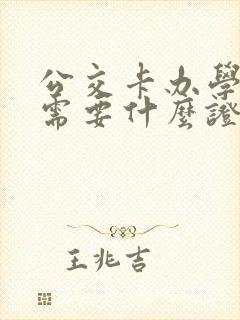 公交卡办學
需要什麼證
王兆吉